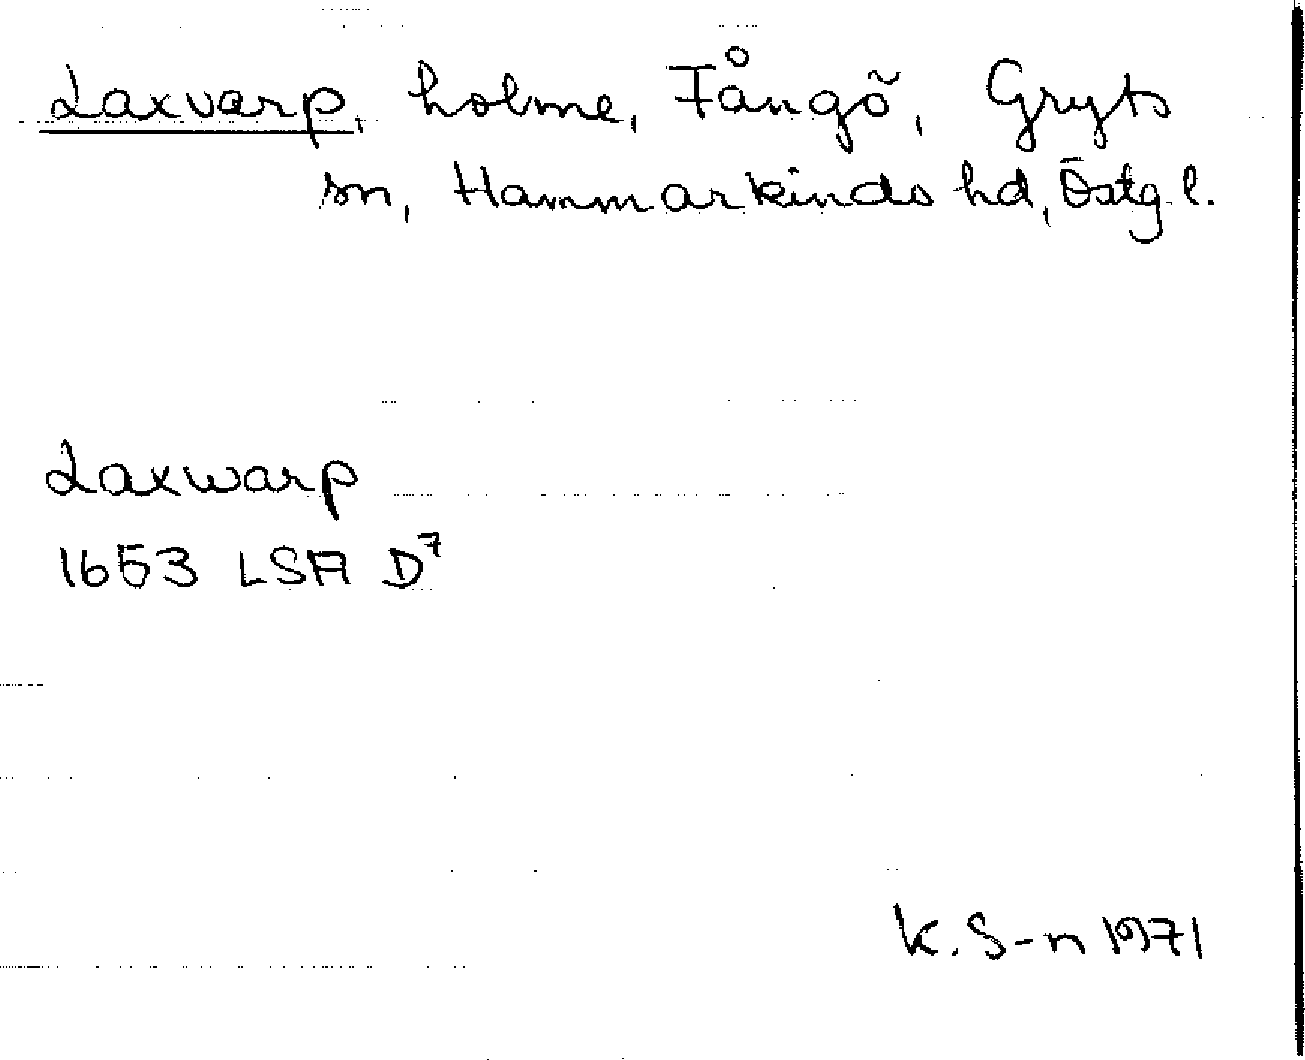 Laxvarp, holme, Fångö, Gryts
sn, Hammarkinds hd, Östg.l.
Laxwarp
1653 LSA D7
K. S-n 1971